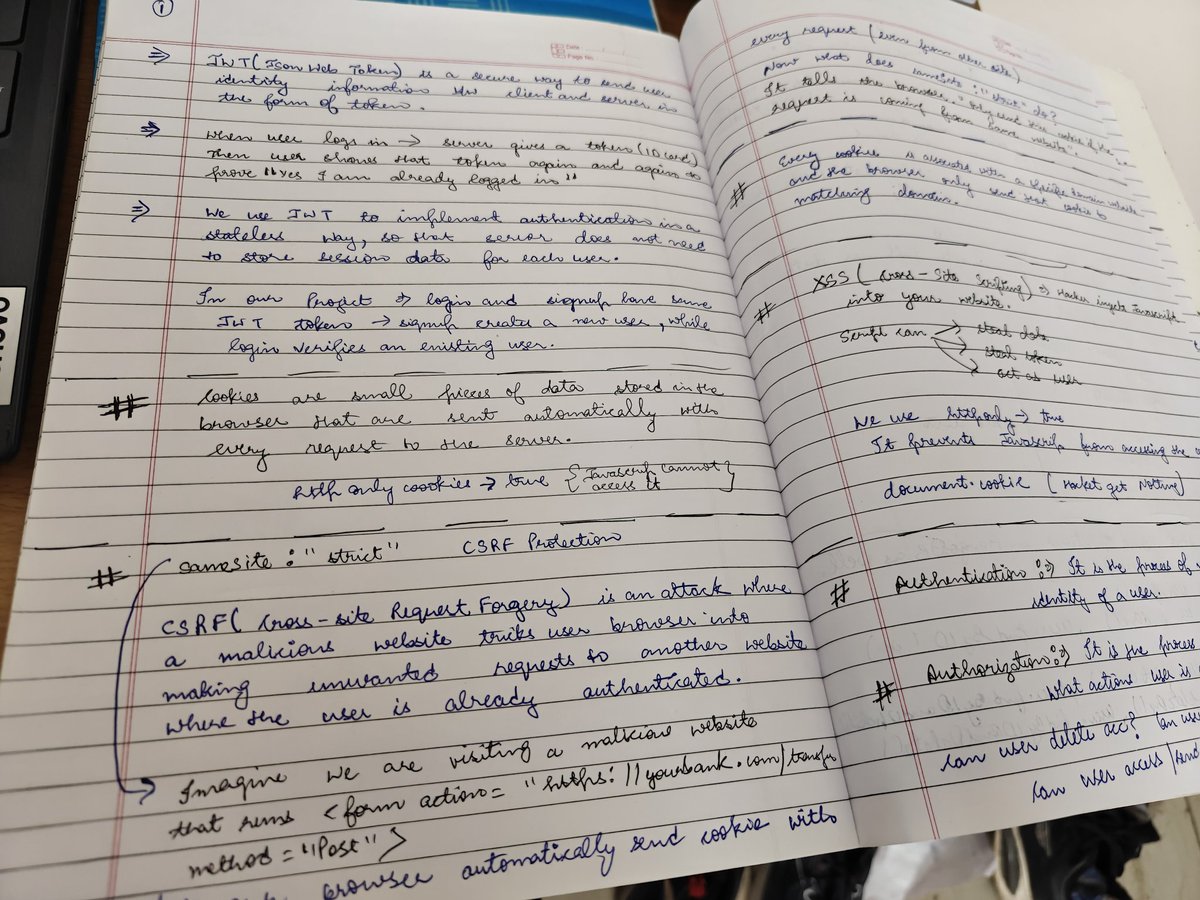 1
⇒ JWT (Json Web Token) is a secure way to send user
identity information b/w client and server in
the form of token.
⇒ When user logs in → server gives a token (ID card)
Then user shows that token again and again to
prove "Yes I am already logged in"
⇒ We use JWT to implement authentication in a
stateless way, so that server does not need
to store session data for each user.
In our Project ⇒ login and signup have same
JWT token → signup create a new user, while
login verifies an existing user.
# Cookies are small pieces of data stored in the
browser that are sent automatically with
every request to the server.
http only coookies → true { Javascrip cannot
access it }
# samesite : "strict" CSRF Protection
CSRF (cross-site Request Forgery) is an attack where
a malicious website tricks user browser into
making unwanted requests to another website
where the user is already authenticated.
Imagine we are visiting a malicious website
that runs <form action= "https://yourbank.com/transfer
method = "Post">
browser automatically send cookie with
Date
Page No.
every request (even from other site)
Now what does samesite : "strict" do?
It tells the browser, "only send this cookie if the
request is coming from same website".
# Every cookie is associated with a specific domain website
and the browser only send that cookie to
matching domain.
# XSS (cross-site scripting) ⇒ Hacker injects Javascript
into your website.
Script can → steal data
→ steal token
→ act as user
We use httponly → true
It prevents Javascrip from accessing the
document.cookie [Hacket get Nothing]
# Authentication :⇒ It is the process of
identity of a user.
# Authorization :⇒ It is the process
what actions user is
can user delete acc? Can use
can user access /